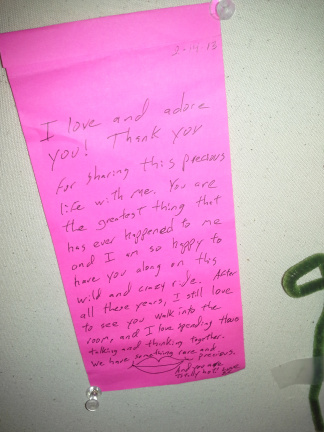 I love and adore
you! Thank you
for sharing this precious
life with me. You are
the greatest thing that
has ever happened to me
and I am so happy to
have you along on this
wild and crazy ride. After
all these years, I still love
to see you walk into the
room, and I love spending
talking and thinking together.
We have something rare and
precious.
And you are